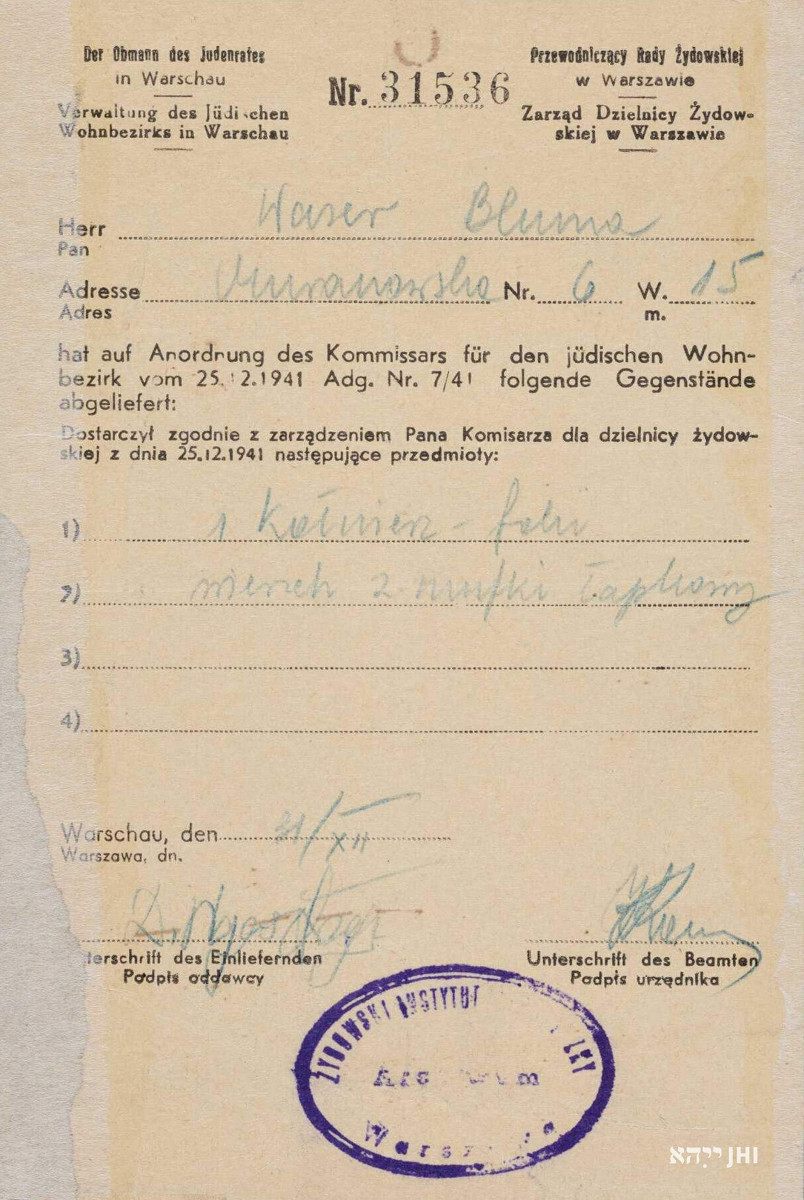 Der Obmann des Judenrates
in Warschau
Verwaltung des Jüdischen
Wohnbezirks in Warschau
Nr. 31536
Przewodniczący Rady Żydowskiej
w Warszawie
Zarząd Dzielnicy Żydow-
skiej w Warszawie
Herr Waser Bluma
Pan
Adresse Muranowska Nr. 6 W. 15
Adres m.
hat auf Anordnung des Kommissars für den jüdischen Wohn-
bezirk vom 25.12.1941 Adg. Nr. 7/41 folgende Gegenstände
abgeliefert:
Dostarczył zgodnie z zarządzeniem Pana Komisarza dla dzielnicy żydow-
skiej z dnia 25.12.1941 następujące przedmioty:
1) 1 Kołnierz - foki
2) wierzch 2 mufki łapkowy
3)
4)
Warschau, den 31/XII
Warszawa, dn.
terschrift des Einliefernden
Podpis oddawcy
Unterschrift des Beamten
Podpis urzędnika
ŻYDOWSKI INSTYTUT
Warsz
אייהי JHI